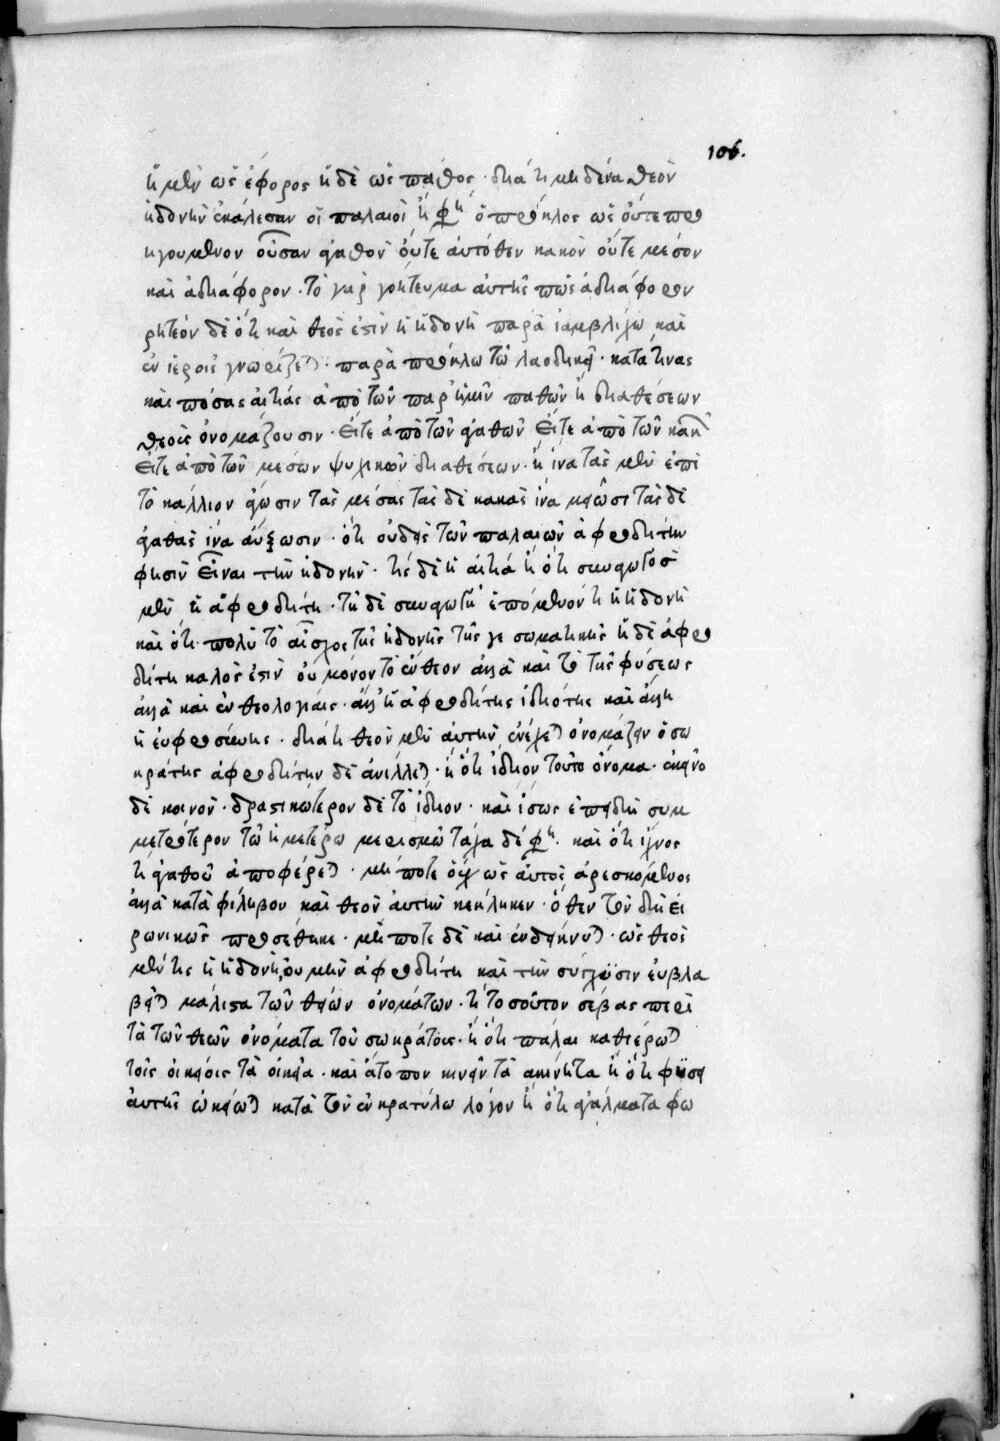 106.
ἡ μὲν ὡς ἔφορος ἡ δὲ ὡς πάθος · διὰ τί μηδένα θεὸν
ἡδονὴν ἐκάλεσαν οἱ παλαιοὶ ἢ φη ὁ πρόκλος ὡς οὔτε προ
ηγουμένον οὖσαν ἀγαθὸν οὔτε αὐτόθεν κακὸν οὔτε μέσον
καὶ ἀδιάφορον · τὸ γὰρ γοήτευμα αὐτῆς πῶς ἀδιάφορον
ρητέον δὲ ὅτι καὶ θεός ἐστιν ἡ ἡδονὴ παρὰ ἰαμβλίχω καὶ
ἐν ἱεροῖς γνωρίζεται · παρὰ πρόκλω τῶ λαοδικεῖ · κατὰ τίνας
καὶ πόσας αἰτίας ἀπὸ τῶν παρ' ἡμῖν παθῶν ἢ διαθέσεων
θεοὺς ὀνομάζουσιν · εἴτε ἀπὸ τῶν ἀγαθῶν εἴτε ἀπὸ τῶν κακῶν
εἴτε ἀπὸ τῶν μέσων ψυχικῶν διαθέσεων · ἢ ἵνα τὰς μὲν ἐπὶ
τὸ κάλλιον ἄγωσιν τὰς μέσας τὰς δὲ κακὰς ἵνα μειῶσι τὰς δὲ
ἀγαθὰς ἵνα αὔξωσιν · ὅτι οὐδεὶς τῶν παλαιῶν ἀφροδίτην
φησὶν εἶναι τὴν ἡδονήν · τίς δὲ ἡ αἰτία ἢ ὅτι συνουσίας
μὲν ἡ ἀφροδίτη · τῆ δὲ συνουσία ἑπόμενόν τι ἡ ἡδονὴ
καὶ ὅτι πολὺ τὸ αἶσχος τῆς ἡδονῆς τῆς γε σωματικῆς ἡ δὲ ἀφρο
δίτη καλός ἐστιν οὐ μόνον τὸ ἔνθεον ἀλλὰ καὶ τὸ τῆς φύσεως
ἀλλὰ καὶ ἐν θεολογίαις · ἄλλη ἡ ἀφροδίτης ἰδιότης καὶ ἄλλη
ἡ εὐφροσύνης · διὰ τί θεὸν μὲν αὐτὴν ἐνέχεται ὀνομάζειν ὁ σω
κράτης ἀφροδίτην δὲ ἀνέλλεται · ἢ ὅτι ἴδιον τοῦτο ὄνομα · ἐκεῖνο
δὲ κοινόν · δραστικώτερον δὲ τὸ ἴδιον · καὶ ἴσως ἐπειδὴ συμ
μετρότερον τῶ ἡμετέρω μερισμῶ τάχα δέ φη · καὶ ὅτι ἴχνος
τι ἀγαθοῦ ἀποφέρεται · μήποτε οὐχ ὡς αὐτὸς ἀρεσκόμενος
ἀλλὰ κατὰ φίληβον καὶ θεὸν αὐτὴν κέκληκεν · ὅθεν τὸν δὴ εἰ
ρωνικῶς προσέθηκε · μήποτε δὲ καὶ ἐνδείκνυται · ὡς θεὸς
μέν τις ἡ ἡδονή, οὐ μὴν ἀφροδίτη καὶ τὴν σύγχυσιν εὐβλα
βεῖται μάλιστα τῶν θείων ὀνομάτων · τί τοσοῦτον σέβας περὶ
τὰ τῶν θεῶν ὀνόματα τοῦ σωκράτους · ἢ ὅτι πάλαι καθιέρωται
τοῖς οἰκείοις τὰ οἰκεῖα · καὶ ἄτοπον κινεῖν τὰ ἀκίνητα ἢ ὅτι φύσει
αὐτῆς ὠκείωται κατὰ τὸν ἐν κρατύλω λόγον ἢ ὅτι ἀγάλματα φω